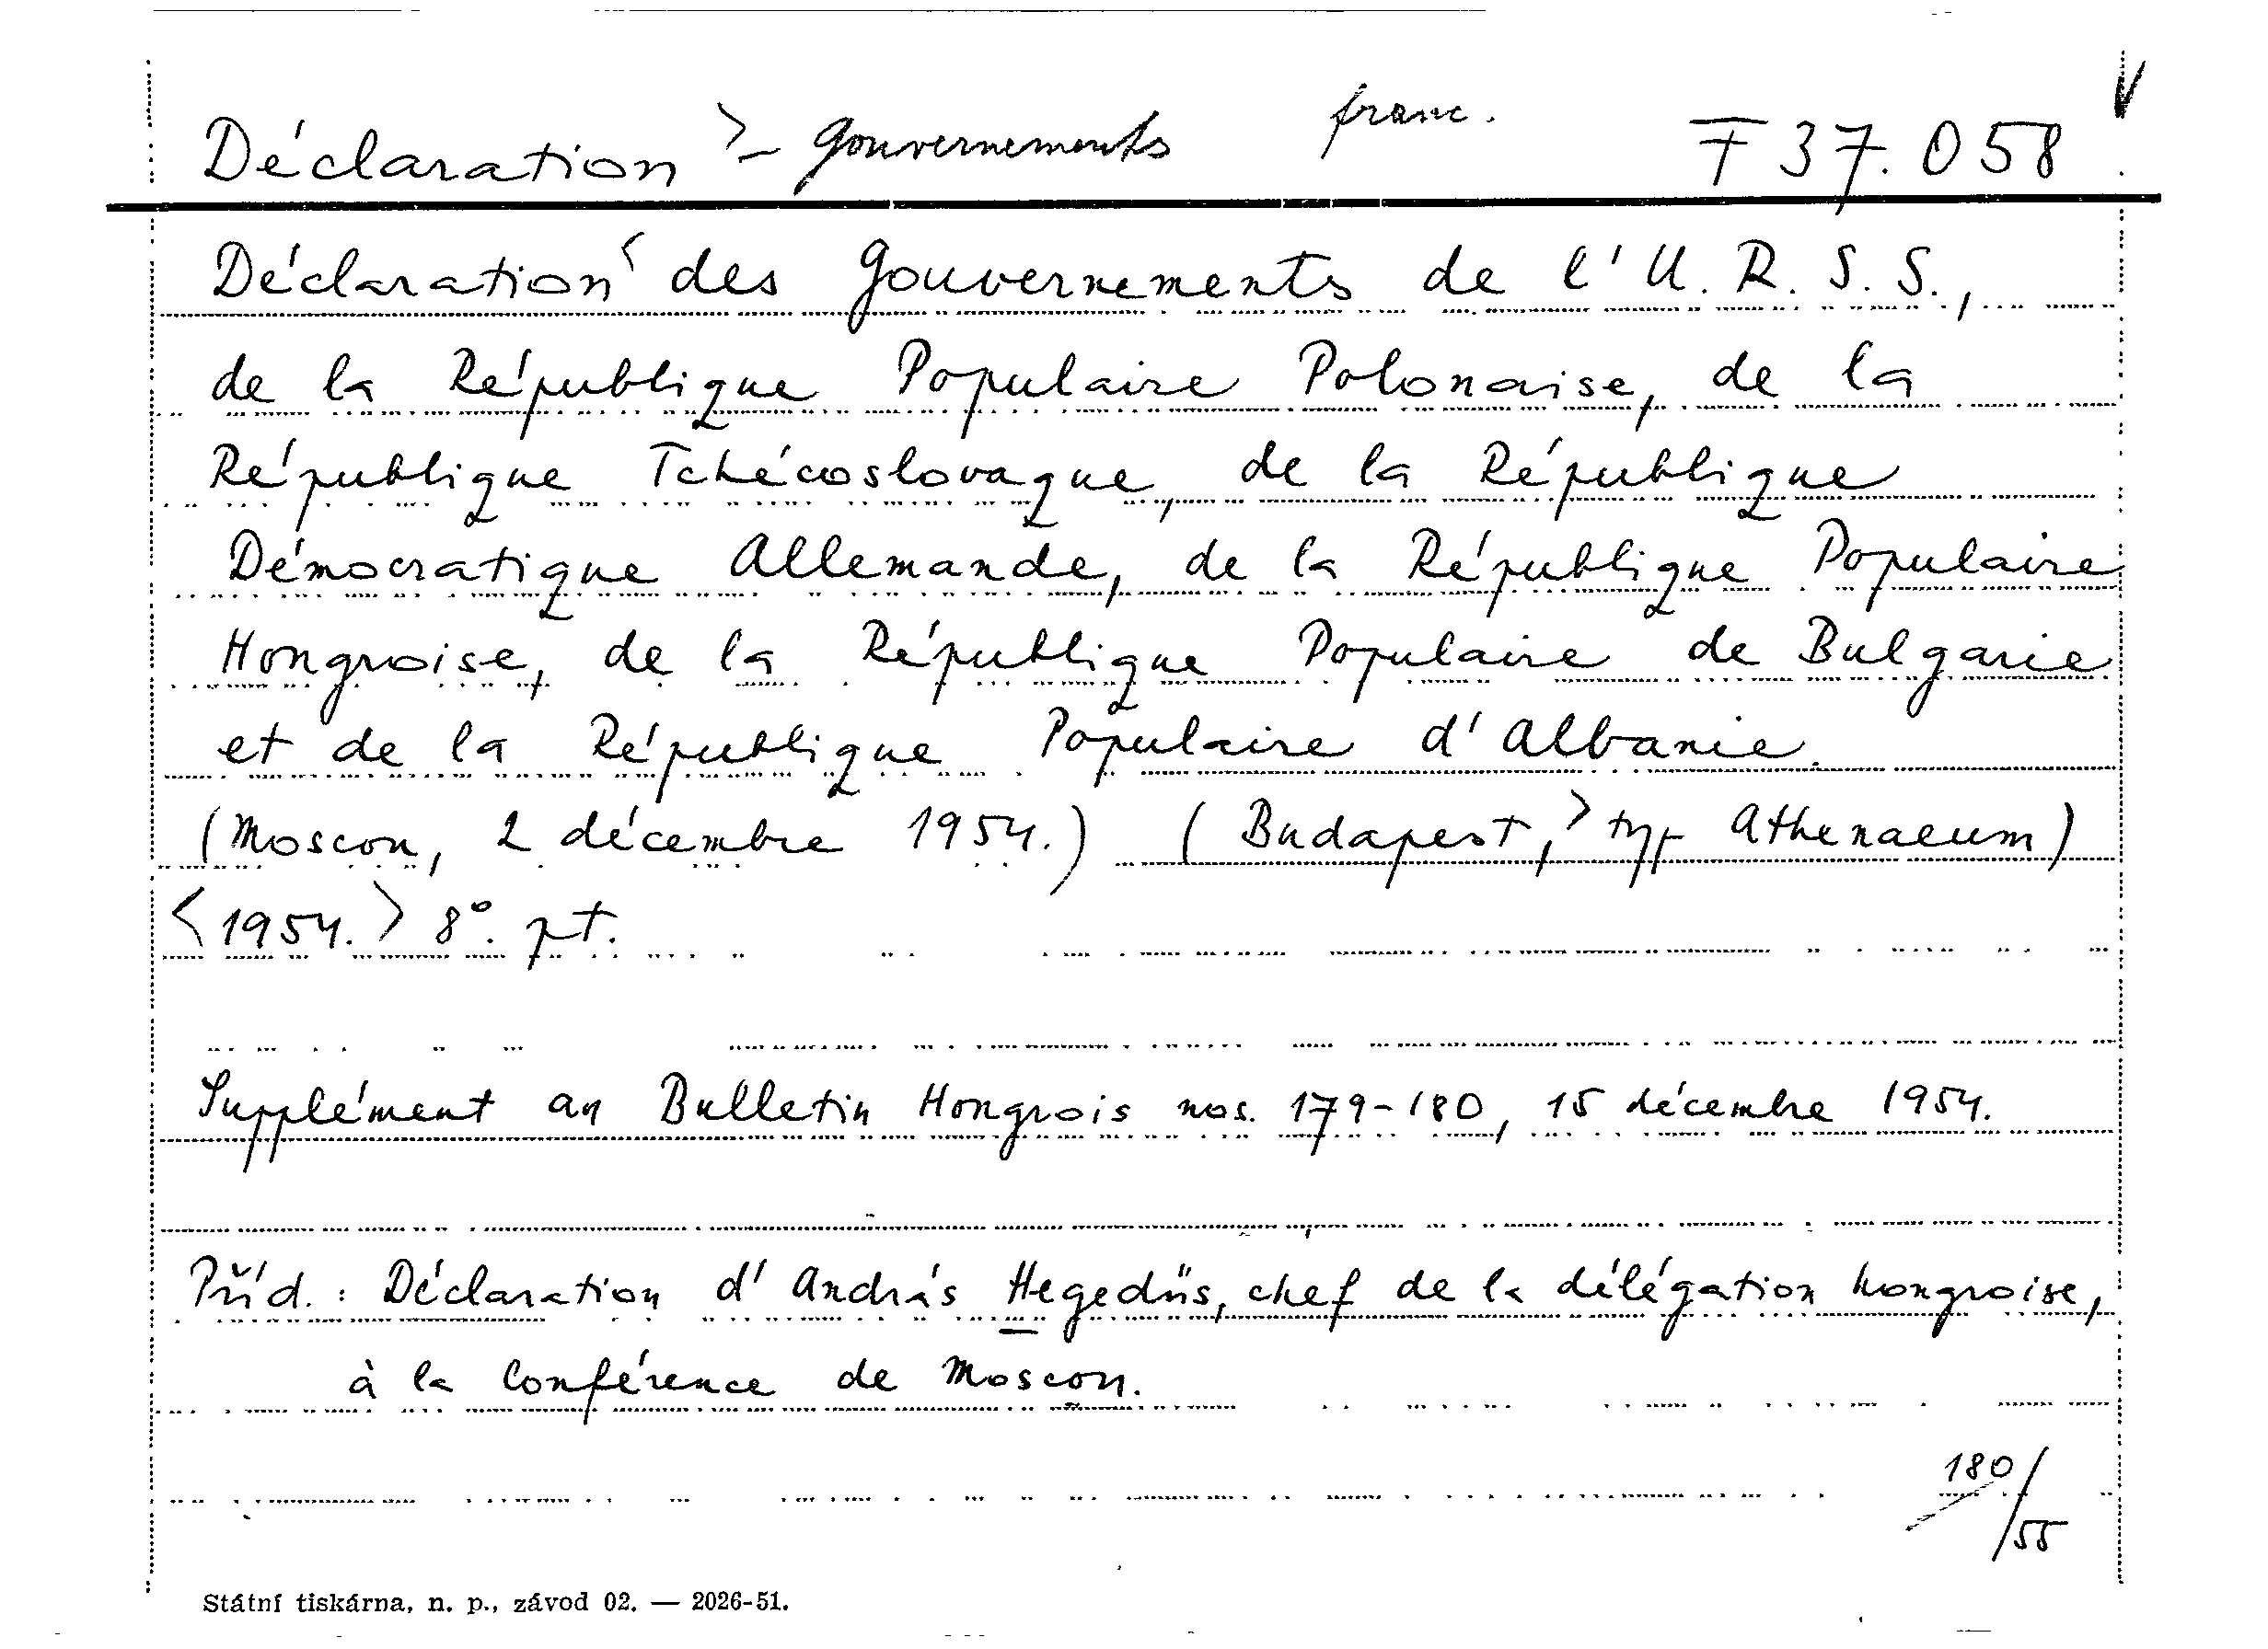 Déclaration > - gouvernements franc. F 37.058
Déclaration < des Gouvernements de l'U.R.S.S.,
de la République Populaire Polonaise, de la
République Tchécoslovaque, de la République
Démocratique Allemande, de la République Populaire
Hongroise, de la République Populaire de Bulgarie
et de la République Populaire d'Albanie.
(Moscou, 2 décembre 1954.) (Budapest, > typ Athenaeum)
<1954.> 8°. pt.
Supplément au Bulletin Hongrois nos. 179-180, 15 décembre 1954.
Příd.: Déclaration d'András Hegedüs, chef de la délégation hongroise,
à la Conférence de Moscou.
180/55
Státní tiskárna, n. p., závod 02. — 2026-51.